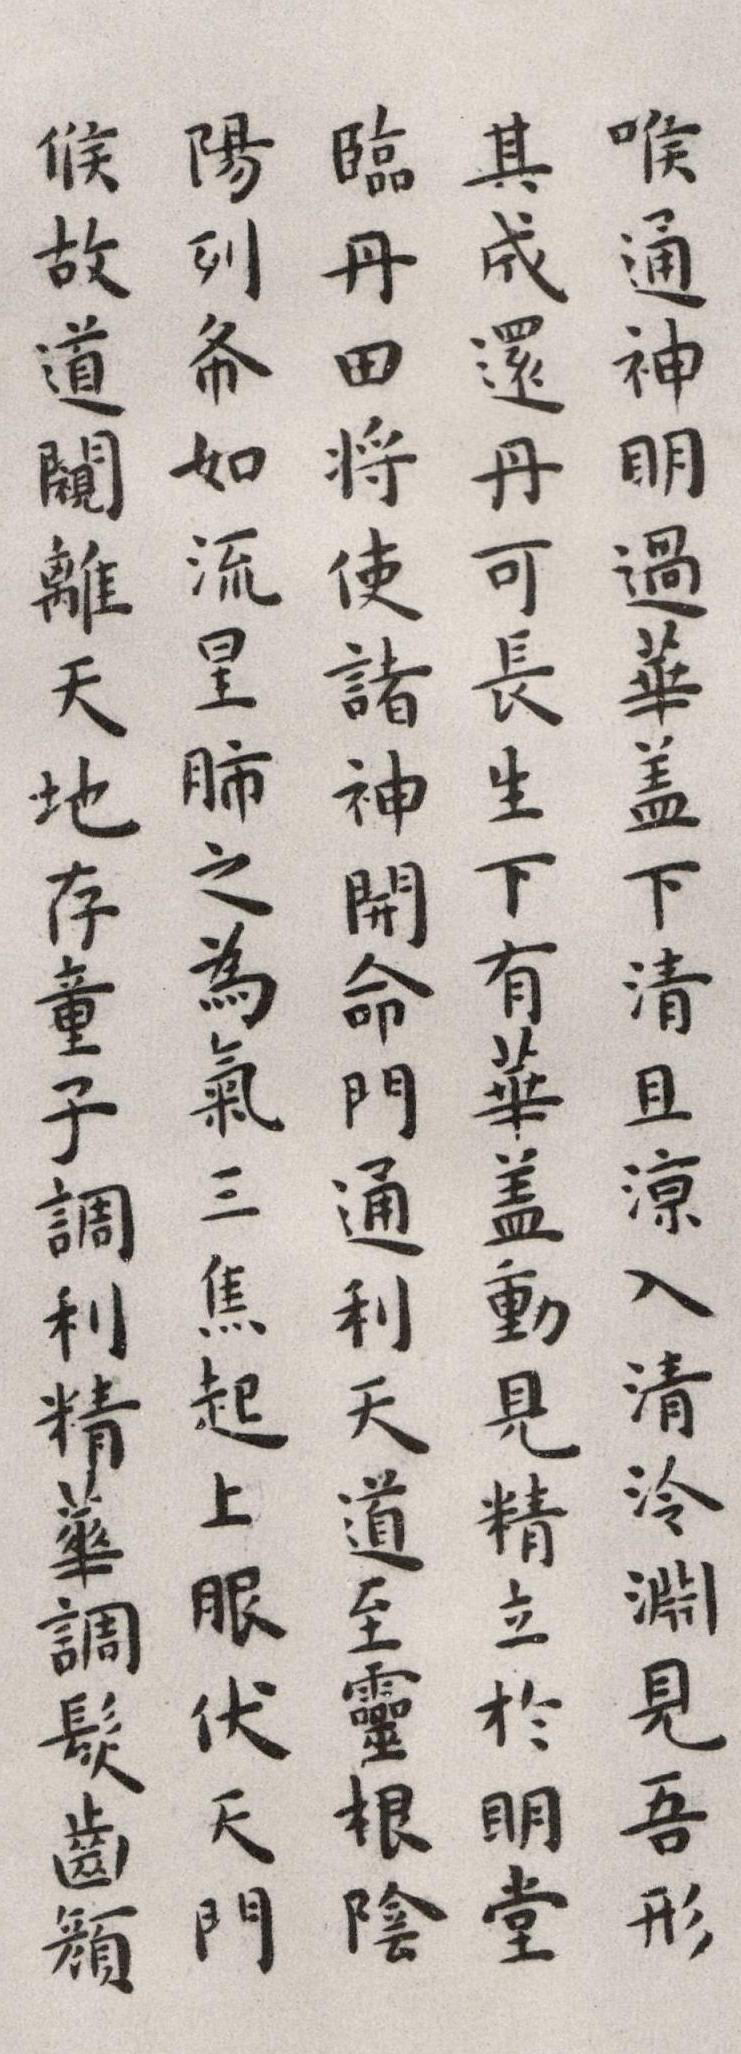 喉通神明過華盖下清且涼入清泠淵見吾形
其成還丹可長生下有華盖動見精立於明堂
臨丹田将使諸神開命門通利天道至靈根陰
陽列布如流星肺之為氣三焦起上服伏天門
候故道闚離天地存童子調利精華調髮齒顏